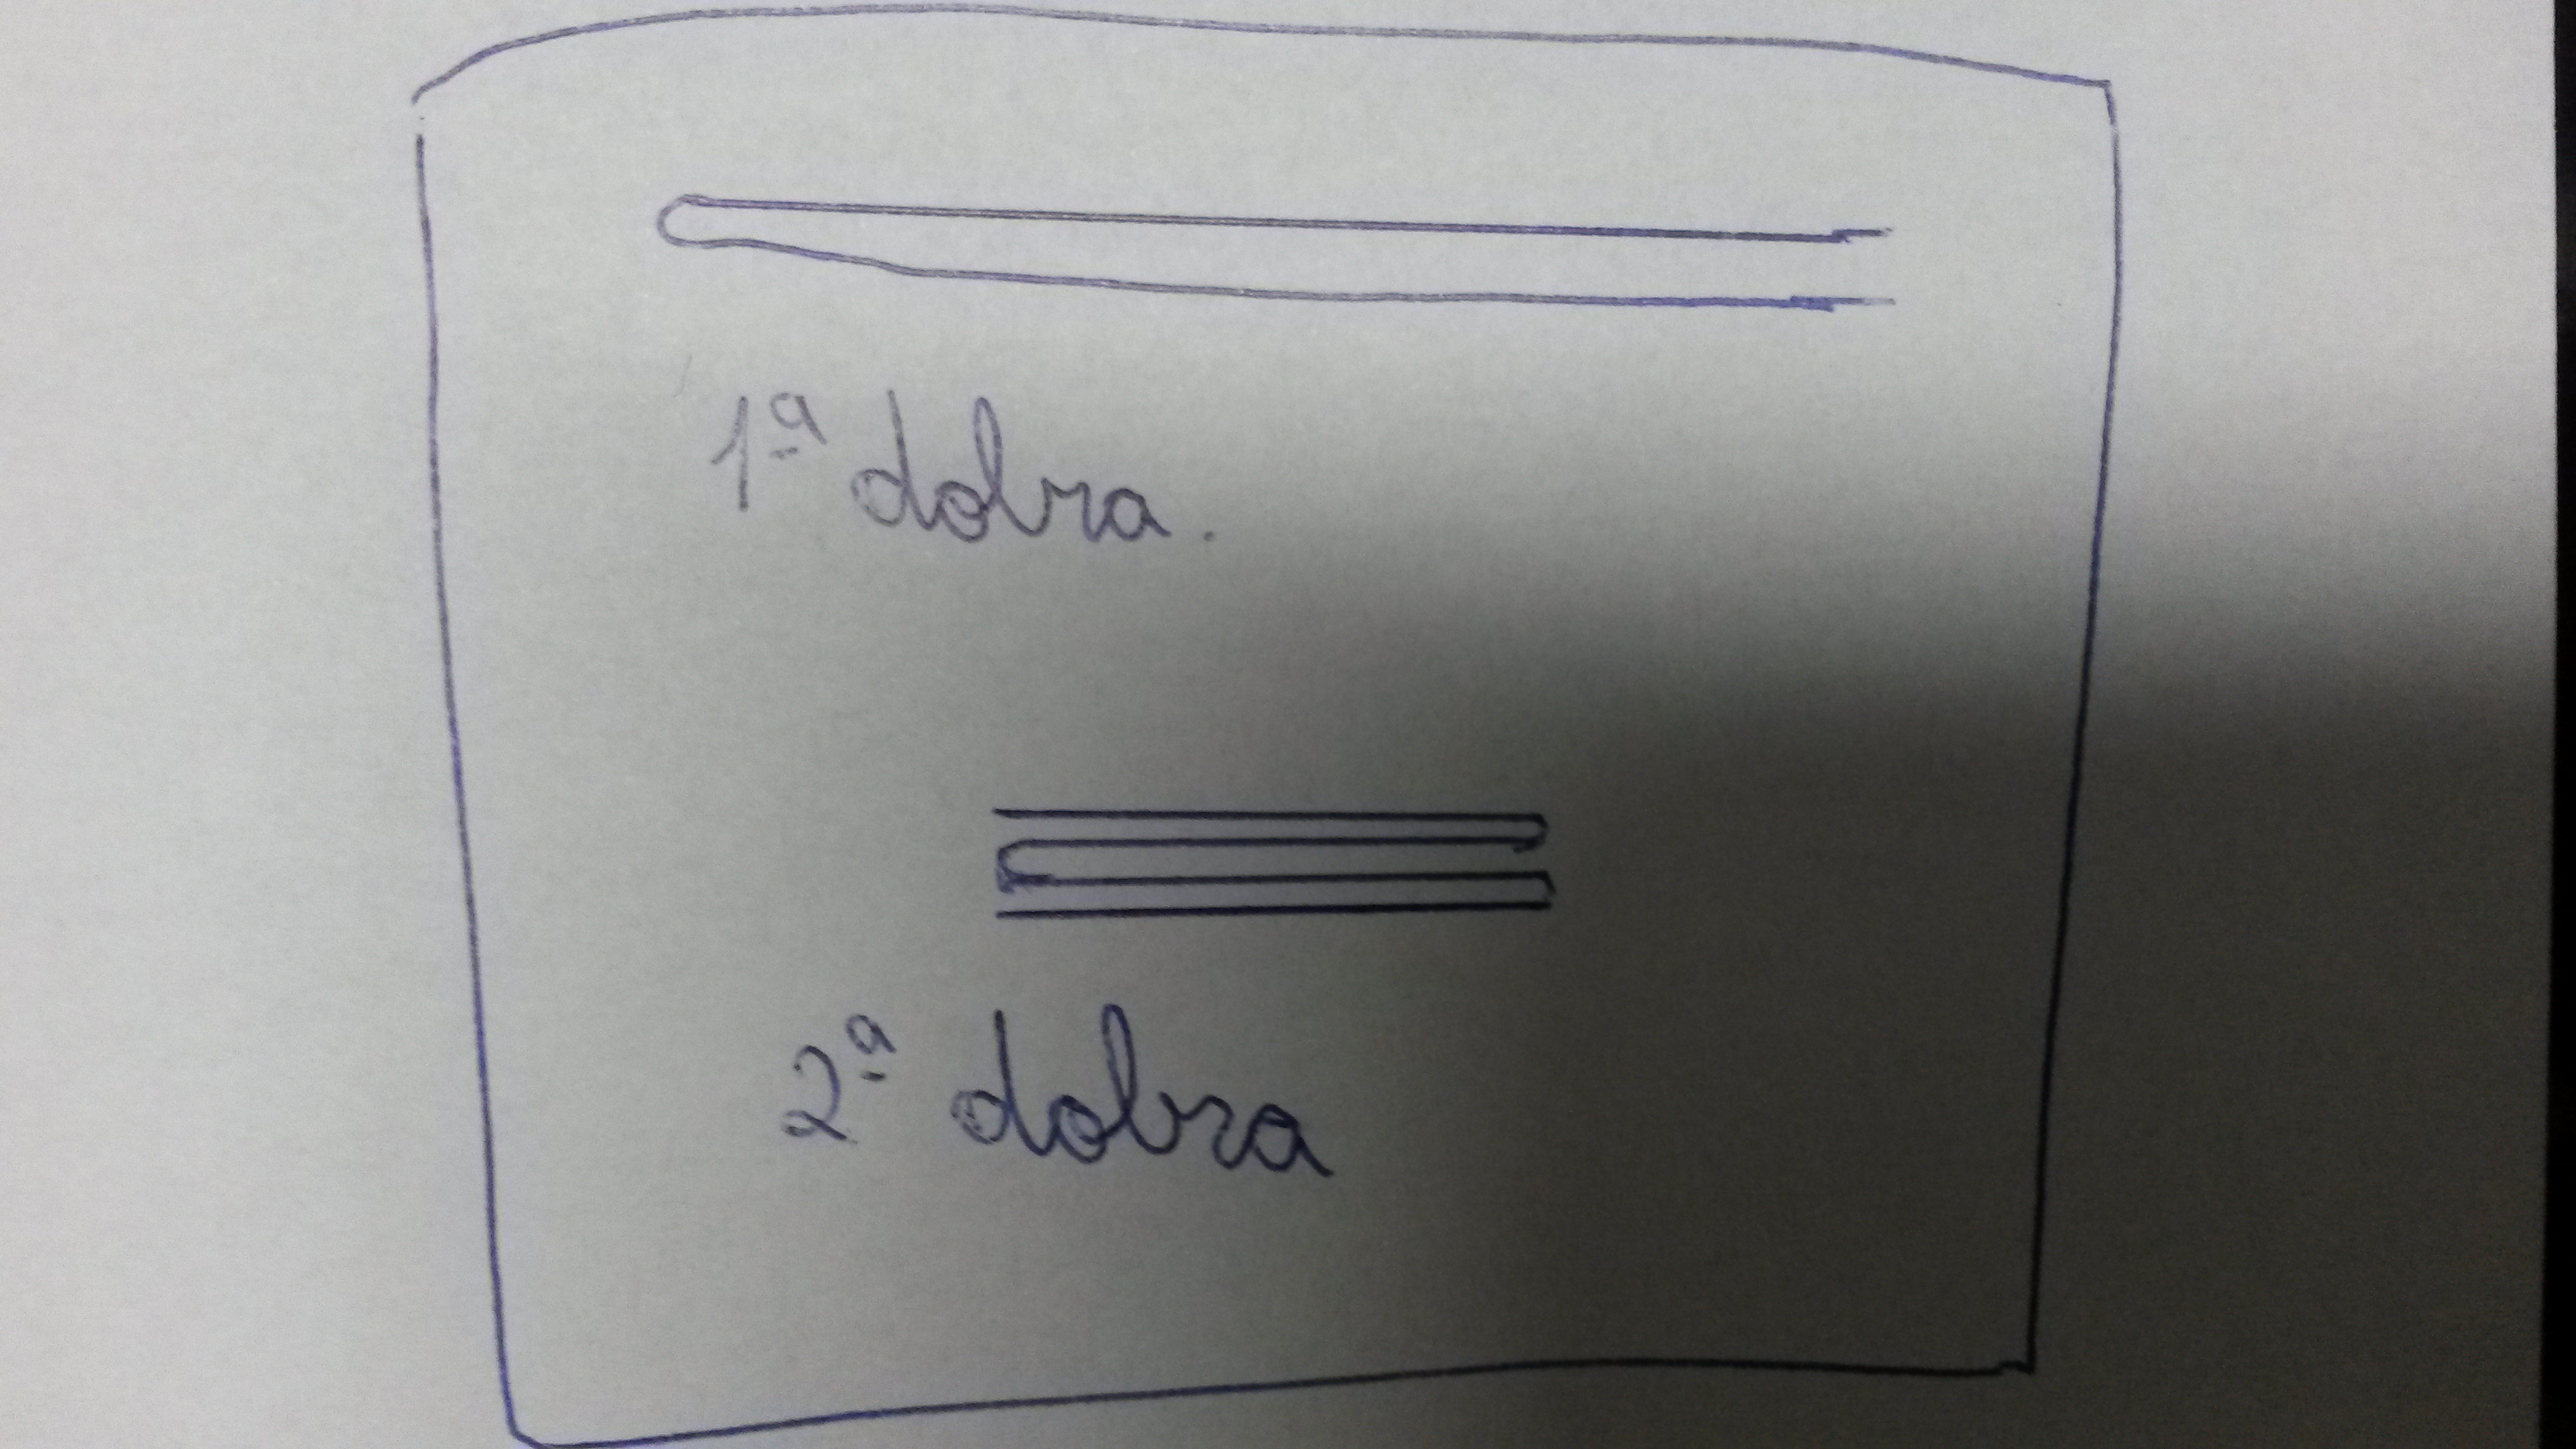 1ª dobra.
2ª dobra